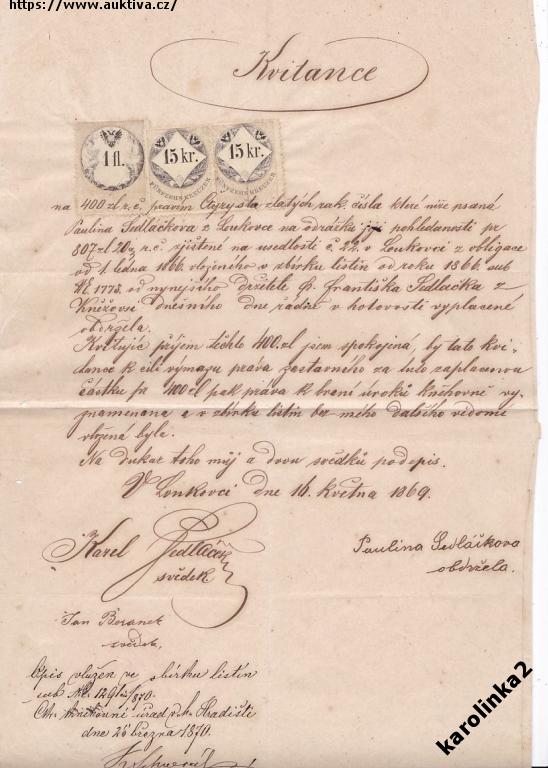 https://www.auktiva.cz/
Kvitance
1 fl. 15 kr. 15 kr.
FÜNFZEHN KREUZER FÜNFZEHN KREUZER
na 400 zl r. č. pravím Čtyry sta zlatých rak. čísla které níže psaná
Paulina Sedláčkova z Loukovce na odrážku pohledanosti pr
807 zl 20 r. č. zjištěné na usedlosti č. 22. v Loukovci z obligace
od 1. ledna 1866 vloženého v sbírku listin od roku 1866 sub
NE. 1775. od nynejšího držitele p. Františka Sedlačka z
Kněžovsi dnešního dne řádně v hotovosti vyplacené
obdržela.
Kvitujíc příjem těchto 400 zl jsem spokojená, by tato kvi-
tance k cíli výmazu práva zastavného za tuto zaplacenou
částku pr 400 zl pak práva k braní úroků knihovně vy-
znamenana a v zbírku listin bez mého dalšího vědomí
vložená byla.
Na dukaz toho můj a dvou svědků podepis.
V Loukovci dne 16. května 1869.
Karel Sedláček
svědek
Paulina Sedláčkova
obdržela.
Jan Beranek
svědek.
Opis vložen ve sbírku listin
sub
úřad Hradišti
dne 26 března 1870.
karolinka2